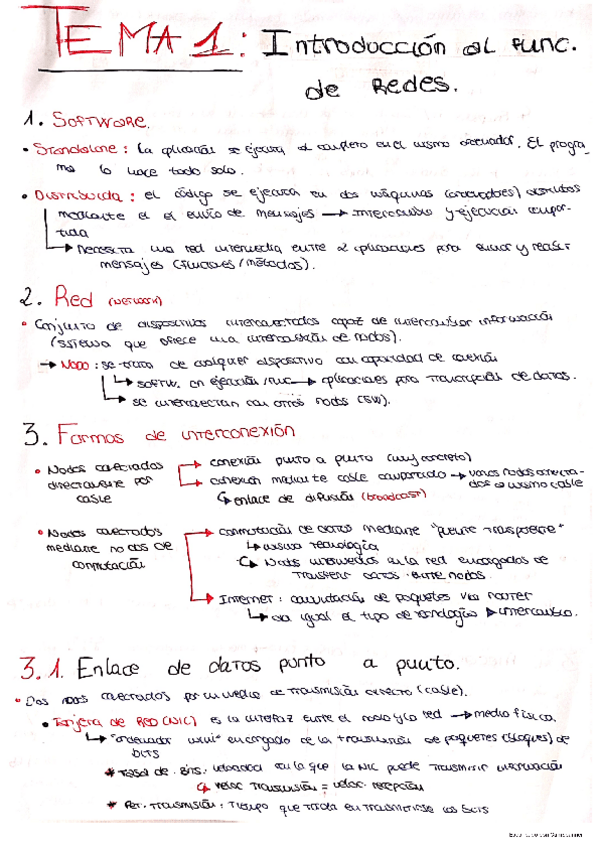 TEMA 1: Introducción al func.
de Redes.
1. Software.
• Standalone: La aplicación se ejecuta al completo en el mismo ordenador. El progra
ma lo hace todo solo.
• Distribuida: el código se ejecuta en dos máquinas (ordenadores) distintos
mediante el el envío de mensajes → Intercambio y ejecución compar-
tida
→ Necesita una red intermedia entre 2 aplicaciones para enviar y recibir
mensajes (funciones/métodos).
2. Red (Network)
• Conjunto de dispositivos interconectados capaz de intercambiar información
(sistema que ofrece una interconexión de nodos).
→ Nodo: se trata de cualquier dispositivo con capacidad de conexión
→ softw. en ejecución → aplicaciones para transcripción de datos.
→ se interconectan con otros nodos (SW).
3. Formas de interconexión
• Nodos conectados
directamente por
cable
→ conexión punto a punto (muy concreto)
→ conexión mediante cable compartido → varios nodos conecta-
dos a mismo cable
↳ enlace de difusión (broadcast)
• Nodos conectados
mediante nodos de
conmutación
→ conmutación de datos mediante "puente transparente"
↳ misma tecnología
↳ Nodos intermedios en la red encargados de
transferir datos entre nodos.
→ Internet: conmutación de paquetes vía router
↳ da igual el tipo de tecnología ▶ intercambio.
3.1. Enlace de datos punto a punto.
• Dos nodos conectados por un medio de transmisión directo (cable).
• Tarjeta de RED (NIC) es la interfaz entre el nodo y la red → medio físico.
↳ "ordenador mini" encargado de la transmisión de paquetes (bloques) de
bits
* Tasa de bits: velocidad en la que la NIC puede transmitir información
↳ veloc transmisión = veloc. recepción
* Ret. Transmisión: Tiempo que tarda en transmitirse los bits